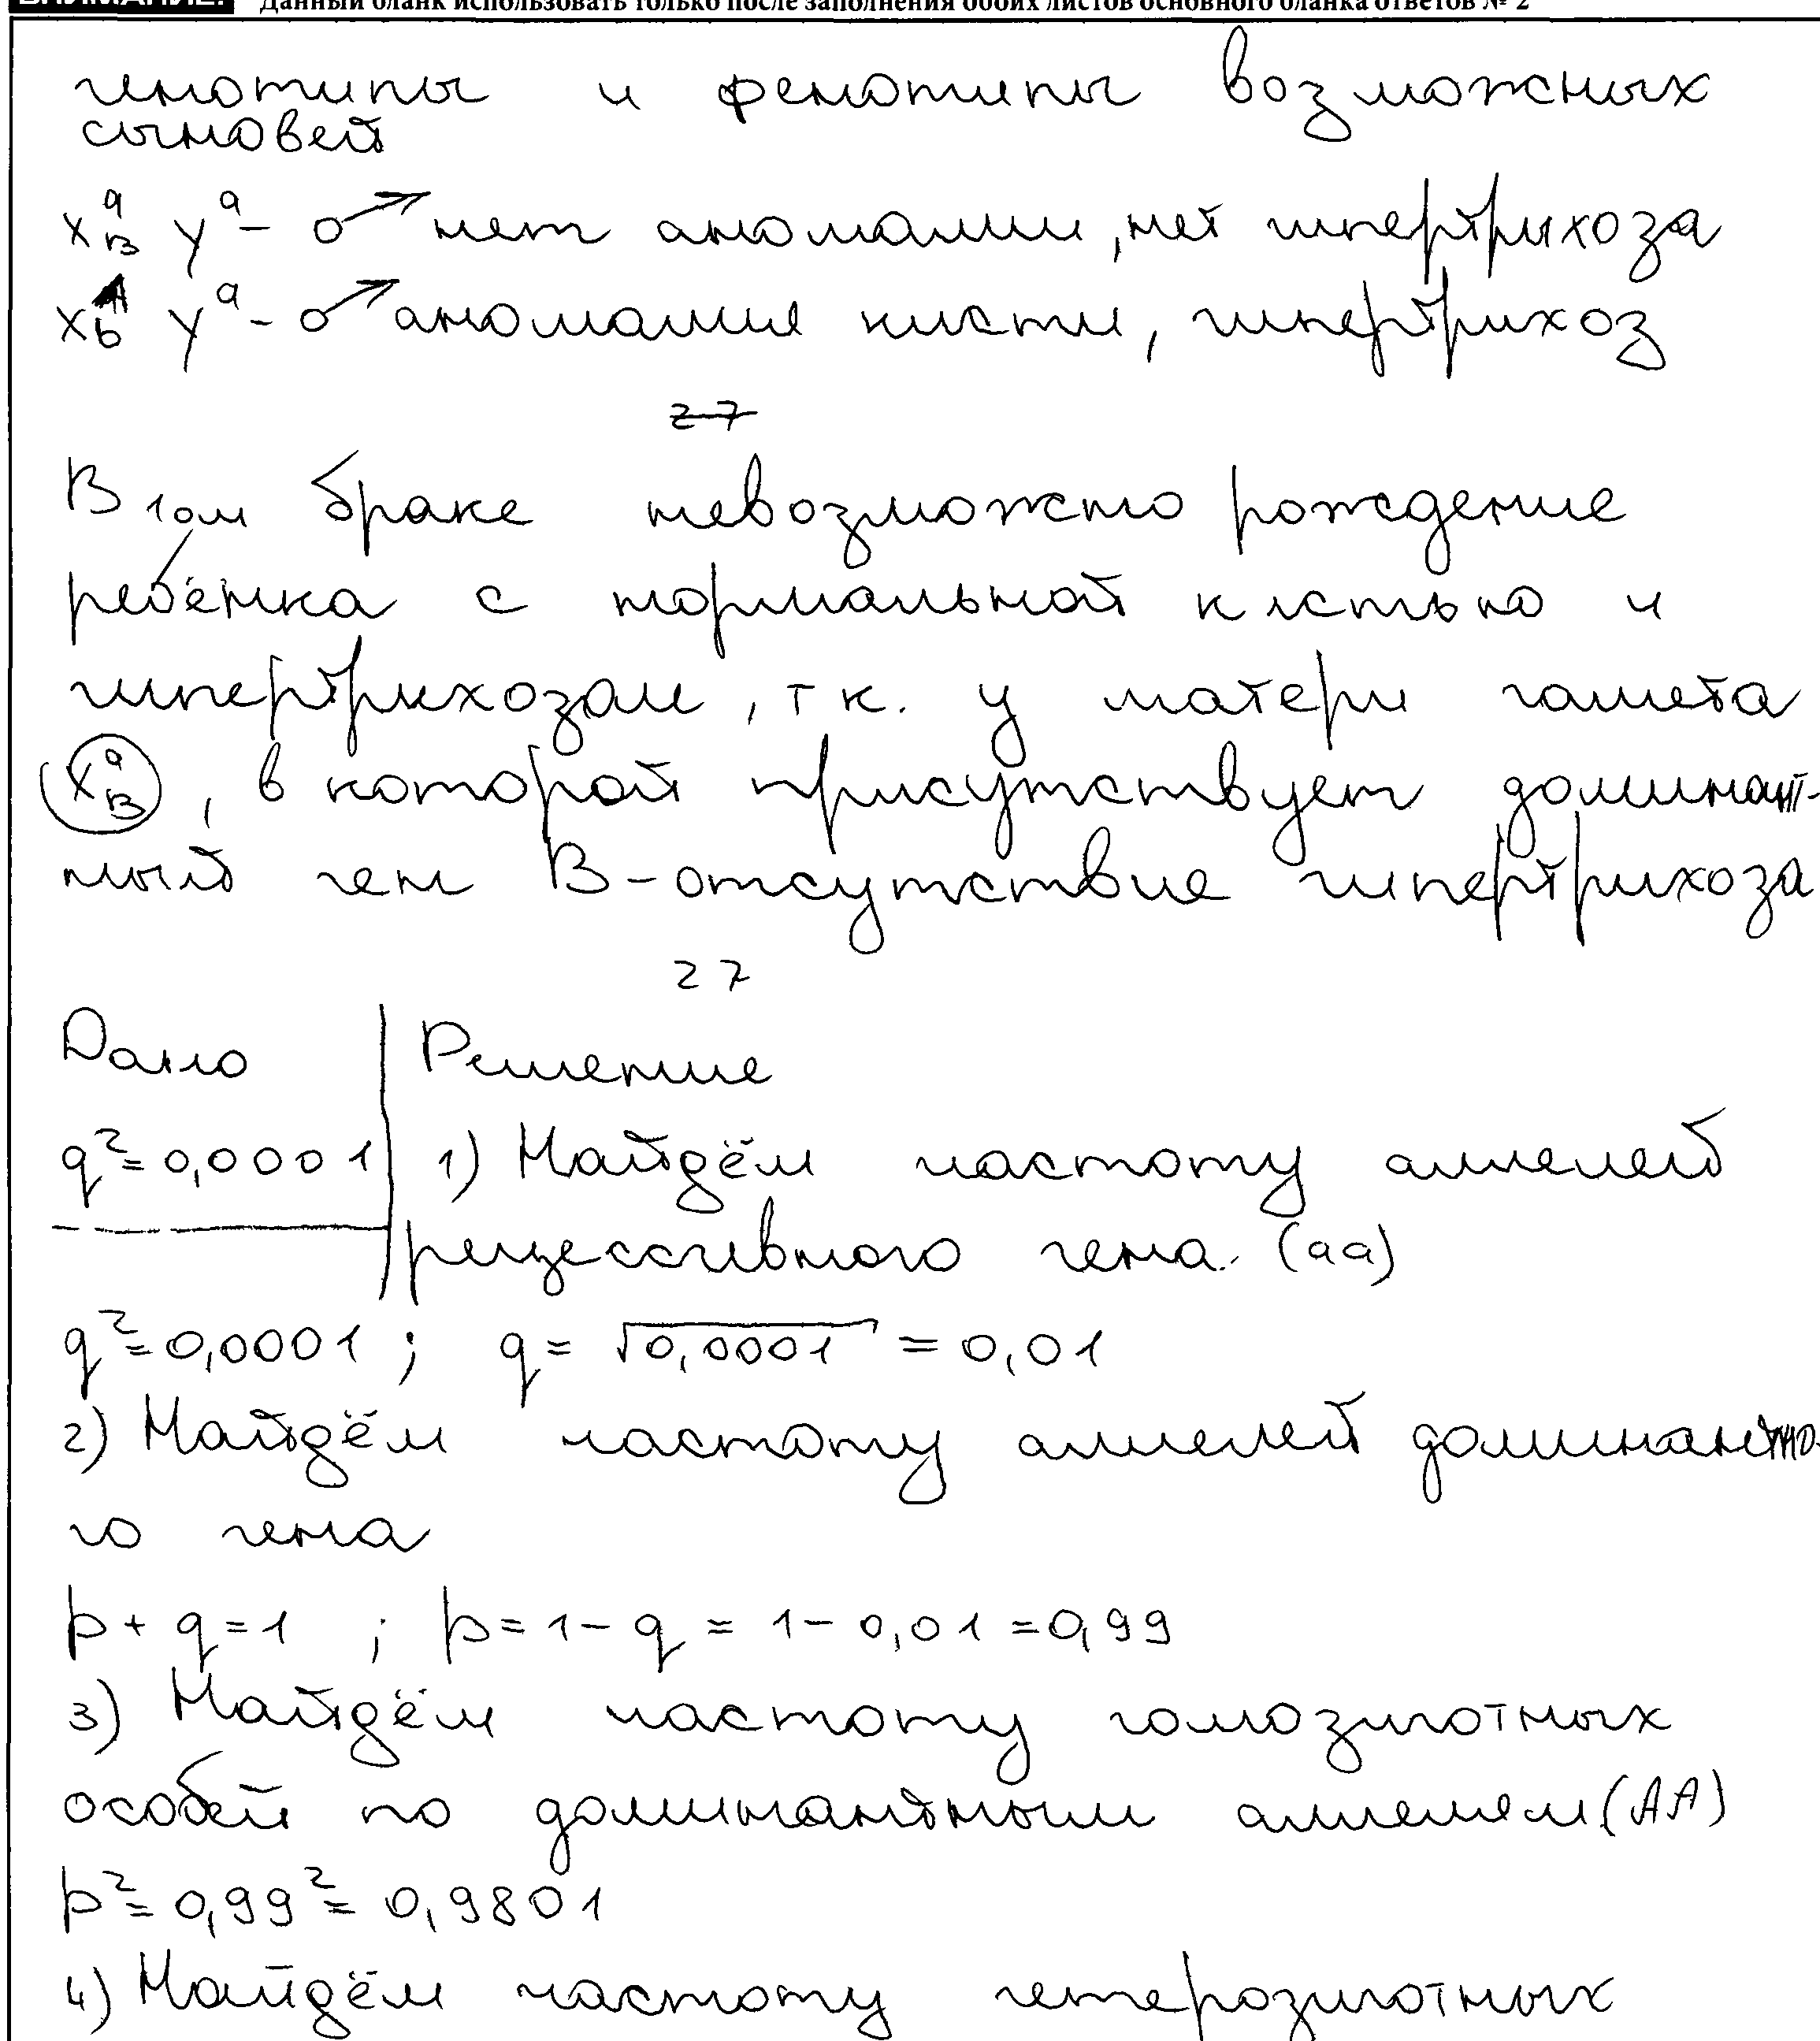 ВНИМАНИЕ! Данный бланк использовать только после заполнения обоих листов основного бланка ответов № 2
генотипы и фенотипы возможных
сыновей
X^a_B Y^a - ♂ нет аномалии, нет гипертрихоза
X^A_b Y^a - ♂ аномалия кисти, гипертрихоз
~~27~~
В 1ом браке невозможно рождение
ребёнка с нормальной кистью и
гипертрихозом, т к. у матери гамета
X^a_B, в которой присутствует доминант-
ный ген В - отсутствие гипертрихоза
27
Дано | Решение
q²=0,0001 | 1) Найдём частоту аллелей
рецессивного гена. (аа)
q²=0,0001 ; q= √0,0001 = 0,01
2) Найдём частоту аллелей доминантно-
го гена
p + q = 1 ; p = 1 - q = 1 - 0,01 = 0,99
3) Найдём частоту гомозиготных
особей по доминантным аллелем (АА)
p² = 0,99² = 0,9801
4) Найдём частоту гетерозиготных